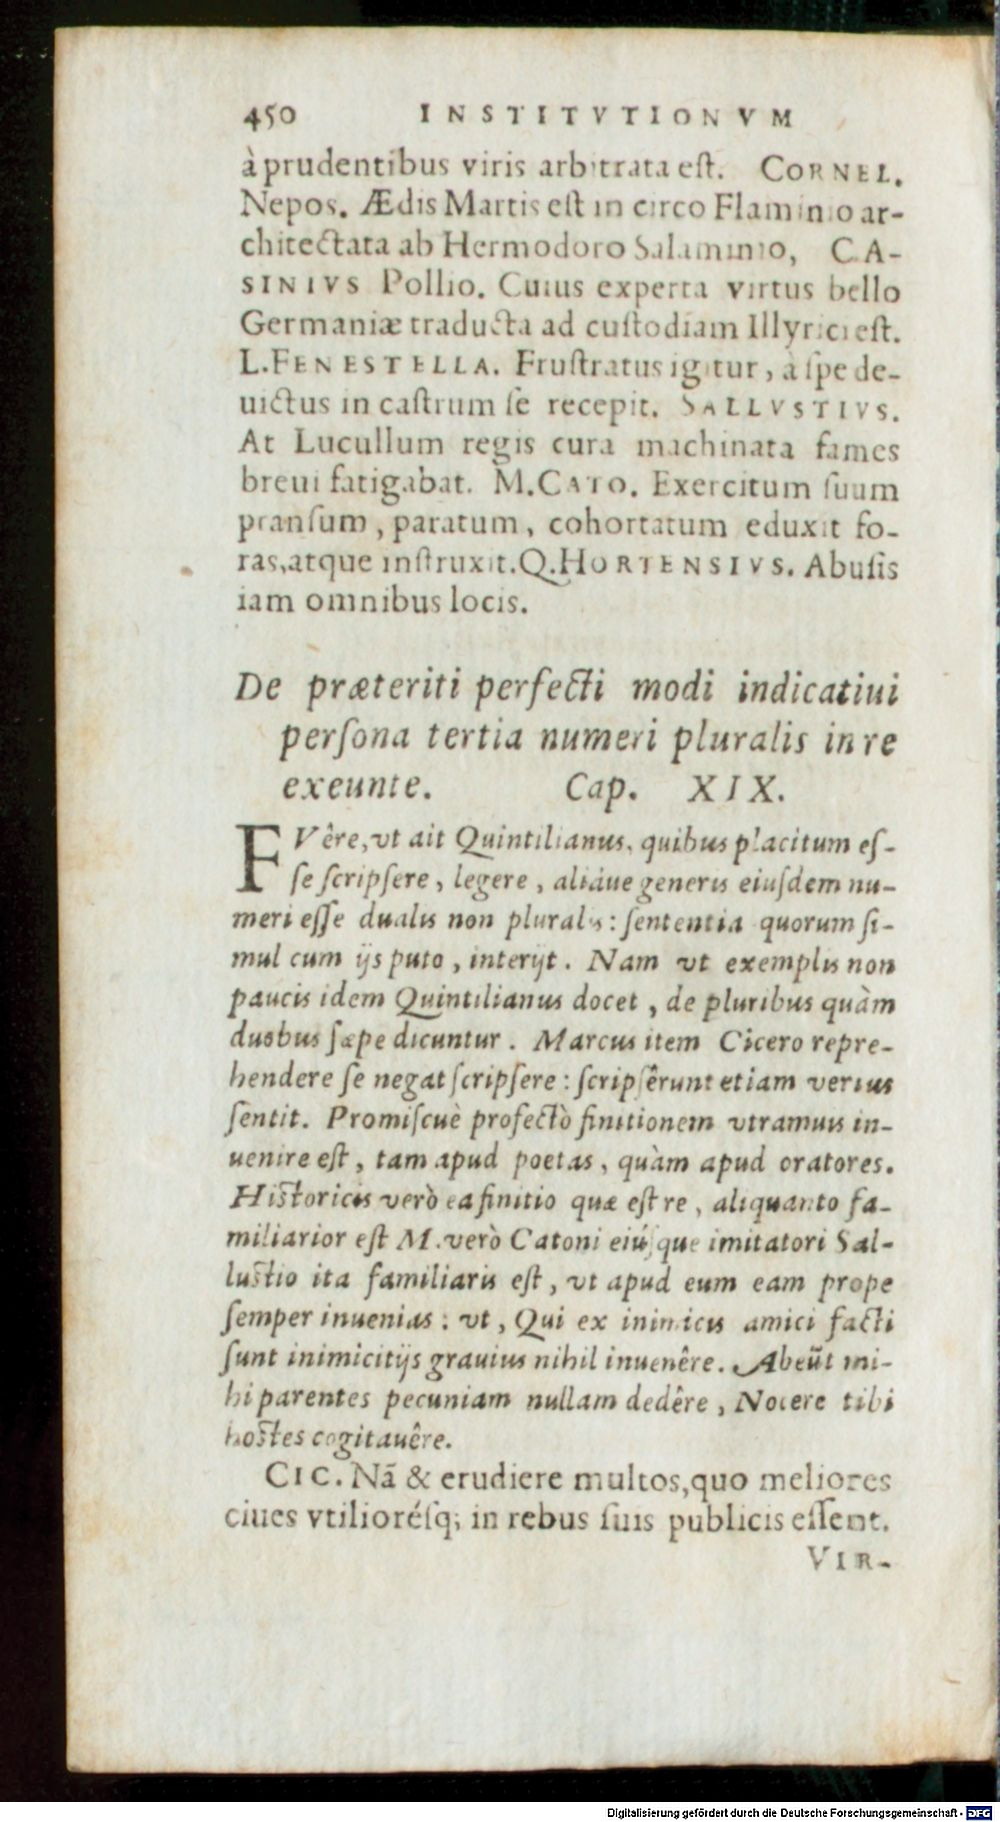 450 INSTITVTIONVM
à prudentibus viris arbitrata est. CORNEL.
Nepos. Ædis Martis est in circo Flaminio ar-
chitectata ab Hermodoro Salaminio, C A-
SINIVS Pollio. Cuius experta virtus bello
Germaniæ traducta ad custodiam Illyrici est.
L.FENESTELLA. Frustratus igitur, à spe de-
uictus in castrum se recepit. SALLVSTIVS.
At Lucullum regis cura machinata fames
breui fatigabat. M.CATO. Exercitum suum
pransum, paratum, cohortatum eduxit fo-
ras,atque instruxit.Q.HORTENSIVS. Abusis
iam omnibus locis.
De præteriti perfecti modi indicatiui
persona tertia numeri pluralis in re
exeunte. Cap. XIX.
FVêre,vt ait Quintilianus, quibus placitum es-
se scripsere, legere, aliáue generis eiusdem nu-
meri esse dualis non pluralis: sententia quorum si-
mul cum ijs puto, interijt. Nam vt exemplis non
paucis idem Quintilianus docet, de pluribus quàm
duobus sæpe dicuntur. Marcus item Cicero repre-
hendere se negat scripsere: scripsêrunt etiam verius
sentit. Promiscuè profectò finitionem vtramuis in-
uenire est, tam apud poetas, quàm apud oratores.
Historicis verò ea finitio quæ est re, aliquanto fa-
miliarior est M.verò Catoni eiúsque imitatori Sal-
lustio ita familiaris est, vt apud eum eam prope
semper inuenias: vt, Qui ex inimicis amici facti
sunt inimicitijs grauius nihil inuenêre. Abeũt mi-
hi parentes pecuniam nullam dedêre, Nocere tibi
hostes cogitauêre.
CIC. Nã & erudiere multos,quo meliores
ciues vtiliorésq; in rebus suis publicis essent.
VIR-
Digitalisierung gefördert durch die Deutsche Forschungsgemeinschaft - DFG